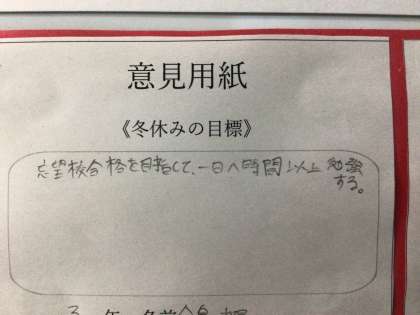 意見用紙
《冬休みの目標》
志望校合格を目指して、一日八時間以上勉強
する。
3 年 名前